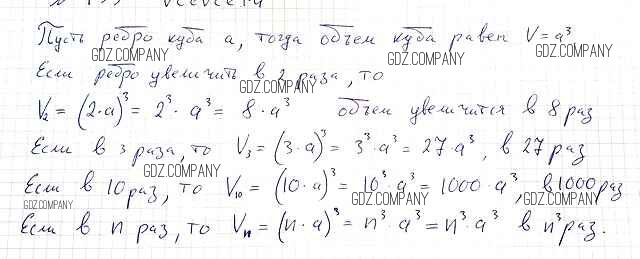 Пусть ребро куба a, тогда объем куба равен V = a³
GDZ.COMPANY GDZ.COMPANY GDZ.COMPANY
Если ребро увеличить в 2 раза, то
GDZ.COMPANY
V₂ = (2·a)³ = 2³ · a³ = 8 · a³ объем увеличится в 8 раз
Если в 3 раза, то V₃ = (3·a)³ = 3³·a³ = 27·a³, в 27 раз
GDZ.COMPANY
Если в 10 раз, то V₁₀ = (10·a)³ = 10³·a³ = 1000·a³, в 1000 раз
GDZ.COMPANY GDZ.COMPANY GDZ.COMPANY
Если в n раз, то Vₙ = (n·a)³ = n³·a³ = n³·a³ в n³ раз.